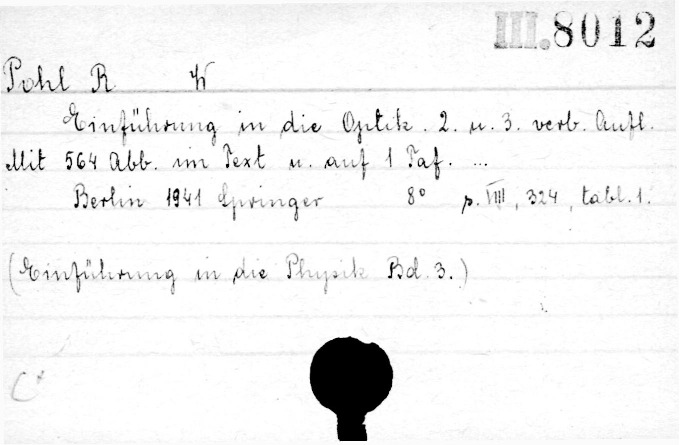 III.8012
Pohl R. W
Einführung in die Optik. 2. u. 3. verb. Aufl.
Mit 564 Abb. im Text u. auf 1 Taf. ...
Berlin 1941 Springer 8° p. VIII, 324, tabl. 1.
(Einführung in die Physik Bd. 3.)